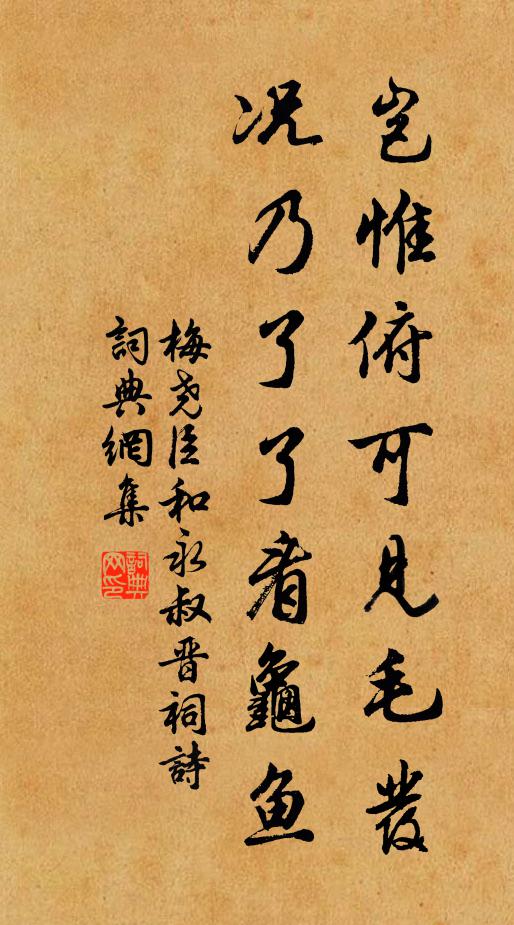 岂惟俯可见毛发
况乃了了看龜鱼
梅尧臣和永叔晋祠詩
詞典網集
詞典
网印